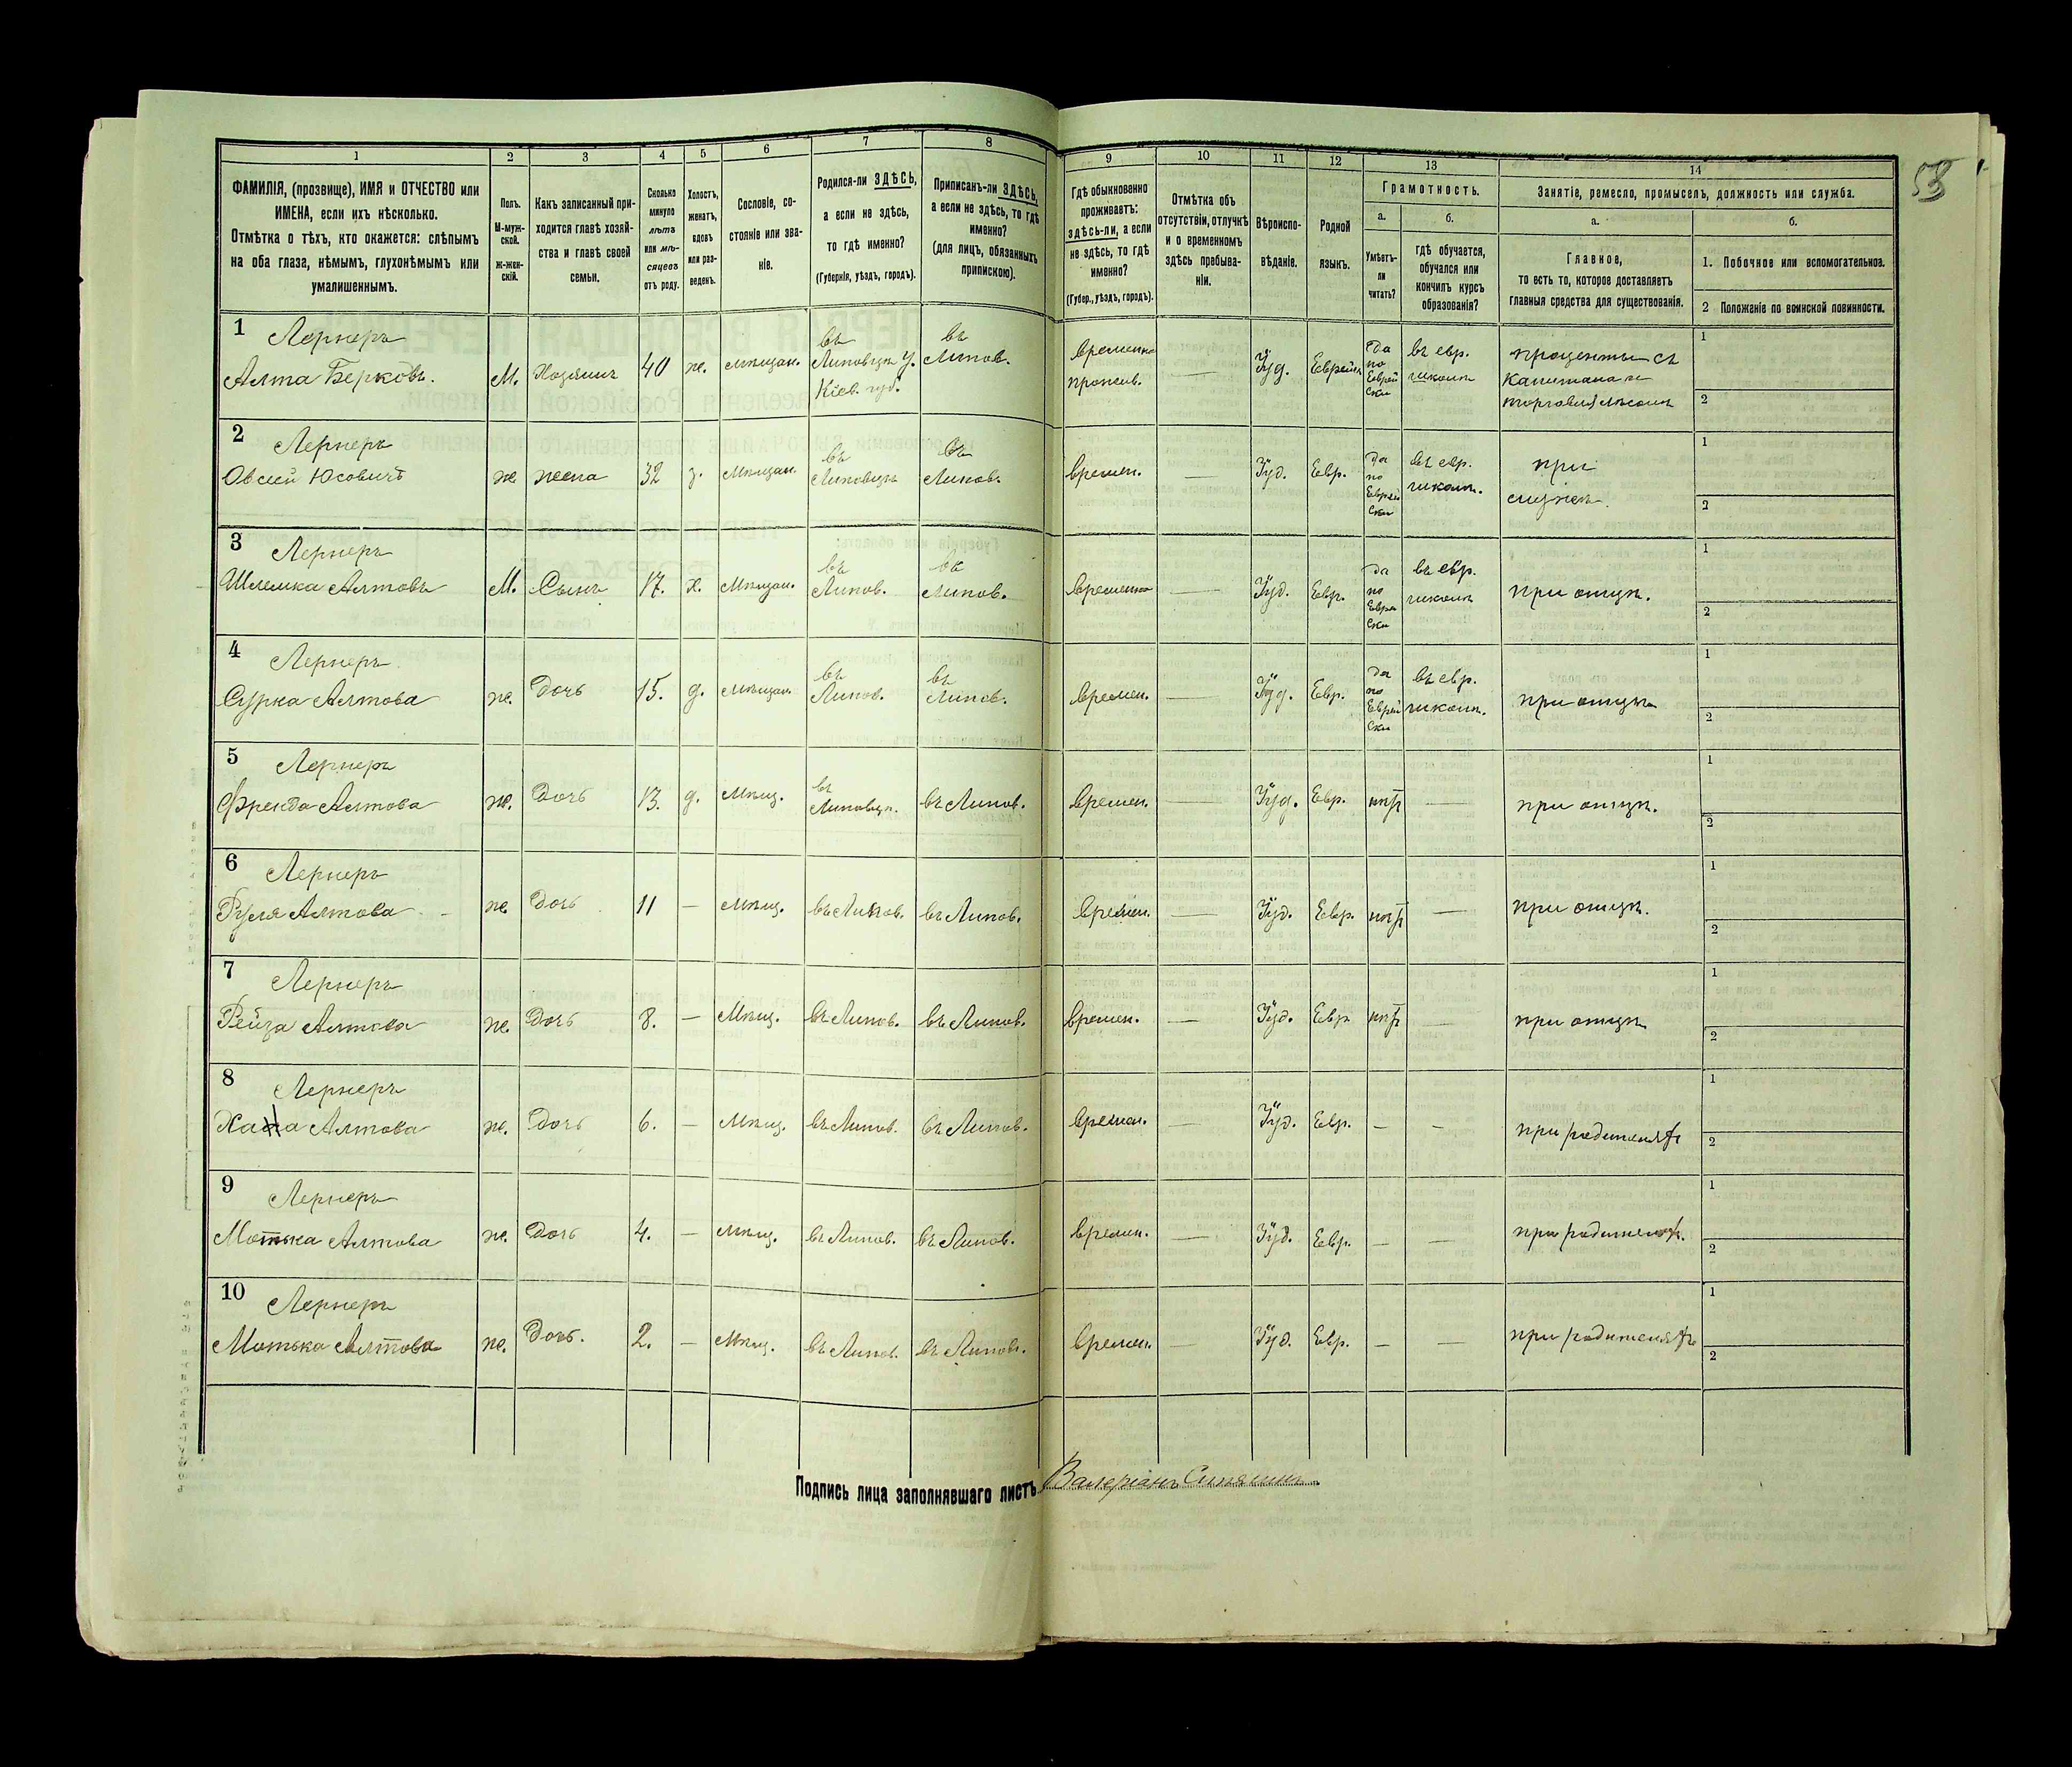 58
1 2 3 4 5 6 7 8 9 10 11 12 13 14
ФАМИЛІЯ, (прозвище), ИМЯ и ОТЧЕСТВО или
ИМЕНА, если ихъ нѣсколько.
Отмѣтка о тѣхъ, кто окажется: слѣпымъ
на оба глаза, нѣмымъ, глухонѣмымъ или
умалишеннымъ.
Полъ.
М-муж-
ской.
Ж-жен-
скій.
Какъ записанный при-
ходится главѣ хозяй-
ства и главѣ своей
семьи.
Сколько
минуло
лѣтъ
или мѣ-
сяцевъ
отъ роду.
Холостъ,
женатъ,
вдовъ
или раз-
веденъ.
Сословіе, со-
стояніе или зва-
ніе.
Родился-ли ЗДѢСЬ,
а если не здѣсь,
то гдѣ именно?
(Губернія, уѣздъ, городъ).
Приписанъ-ли ЗДѢСЬ,
а если не здѣсь, то гдѣ
именно?
(для лицъ, обязанныхъ
припискою).
Гдѣ обыкновенно
проживаетъ:
здѣсь-ли, а если
не здѣсь, то гдѣ
именно?
(Губер., уѣздъ, городъ).
Отмѣтка объ
отсутствіи, отлучкѣ
и о временномъ
здѣсь пребыва-
ніи.
Вѣроиспо-
вѣданіе.
Родной
языкъ.
Грамотность.
а.
Умѣетъ-
ли
читать?
б.
гдѣ обучается,
обучался или
кончилъ курсъ
образованія?
Занятіе, ремесло, промыселъ, должность или служба.
а.
Главное,
то есть то, которое доставляетъ
главныя средства для существованія.
б.
1. Побочное или вспомогательное.
2 Положеніе по воинской повинности.
1 Лернеръ въ въ временно да въ евр. проценты съ 1
Алта Берковъ. М. Хозяинъ 40 ж. мѣщан. Липовцѣ У. Липов. прожив. — Іуд. Еврейск по школѣ капитала и
Кіев. губ. Еврей торговля лѣсомъ 2
ски
2 Лернеръ въ въ да въ евр. при 1
Овсей Юсовичъ ж жена 32 з. мѣщан. Липовцѣ Липов. времен. — Іуд. Евр. по школѣ. мужѣ. 2
Еврей
ски
3 Лернеръ въ въ да въ евр. 1
Шлемка Алтовъ М. Сынъ 17. х. Мѣщан. Липов. Липов. временно — Іуд. Евр. по школѣ при отцѣ. 2
Евре
ски
4 Лернеръ въ въ да въ евр. 1
Сурка Алтова ж. Дочь 15. д. мѣщан. Липов. Липов. времен. — Іуд. Евр. по школѣ. при отцѣ 2
Еврей
ски
5 Лернеръ въ 1
Фрейда Алтова ж. Дочь 13. д. мѣщ. Липовцѣ. въ Липов. времен. Іуд. Евр. нѣтъ — при отцѣ. 2
6 Лернеръ 1
Руля Алтова ж. Дочь 11 — мѣщ. въ Липов. въ Липов. времен. — Іуд. Евр. нѣтъ — при отцѣ. 2
7 Лернеръ 1
Рейза Алтова ж. Дочь 8. — Мѣщ. въ Липов. въ Липов. времен. — Іуд. Евр нѣтъ — при отцѣ 2
8 Лернеръ 1
Хана Алтова ж. Дочь 6. — мѣщ. въ Липов. въ Липов. времен. — Іуд. Евр. — — при родителяхъ 2
9 Лернеръ 1
Мотька Алтова ж. Дочь 4. — мѣщ. въ Липов. въ Липов. времен. — Іуд. Евр. — — при родителяхъ. 2
10 Лернеръ 1
Мотька Алтова ж. Дочь. 2. — Мѣщ. въ Липов. въ Липов. времен. — Іуд. Евр. — — при родителяхъ 2
Подпись лица заполнявшаго листъ Валеріанъ